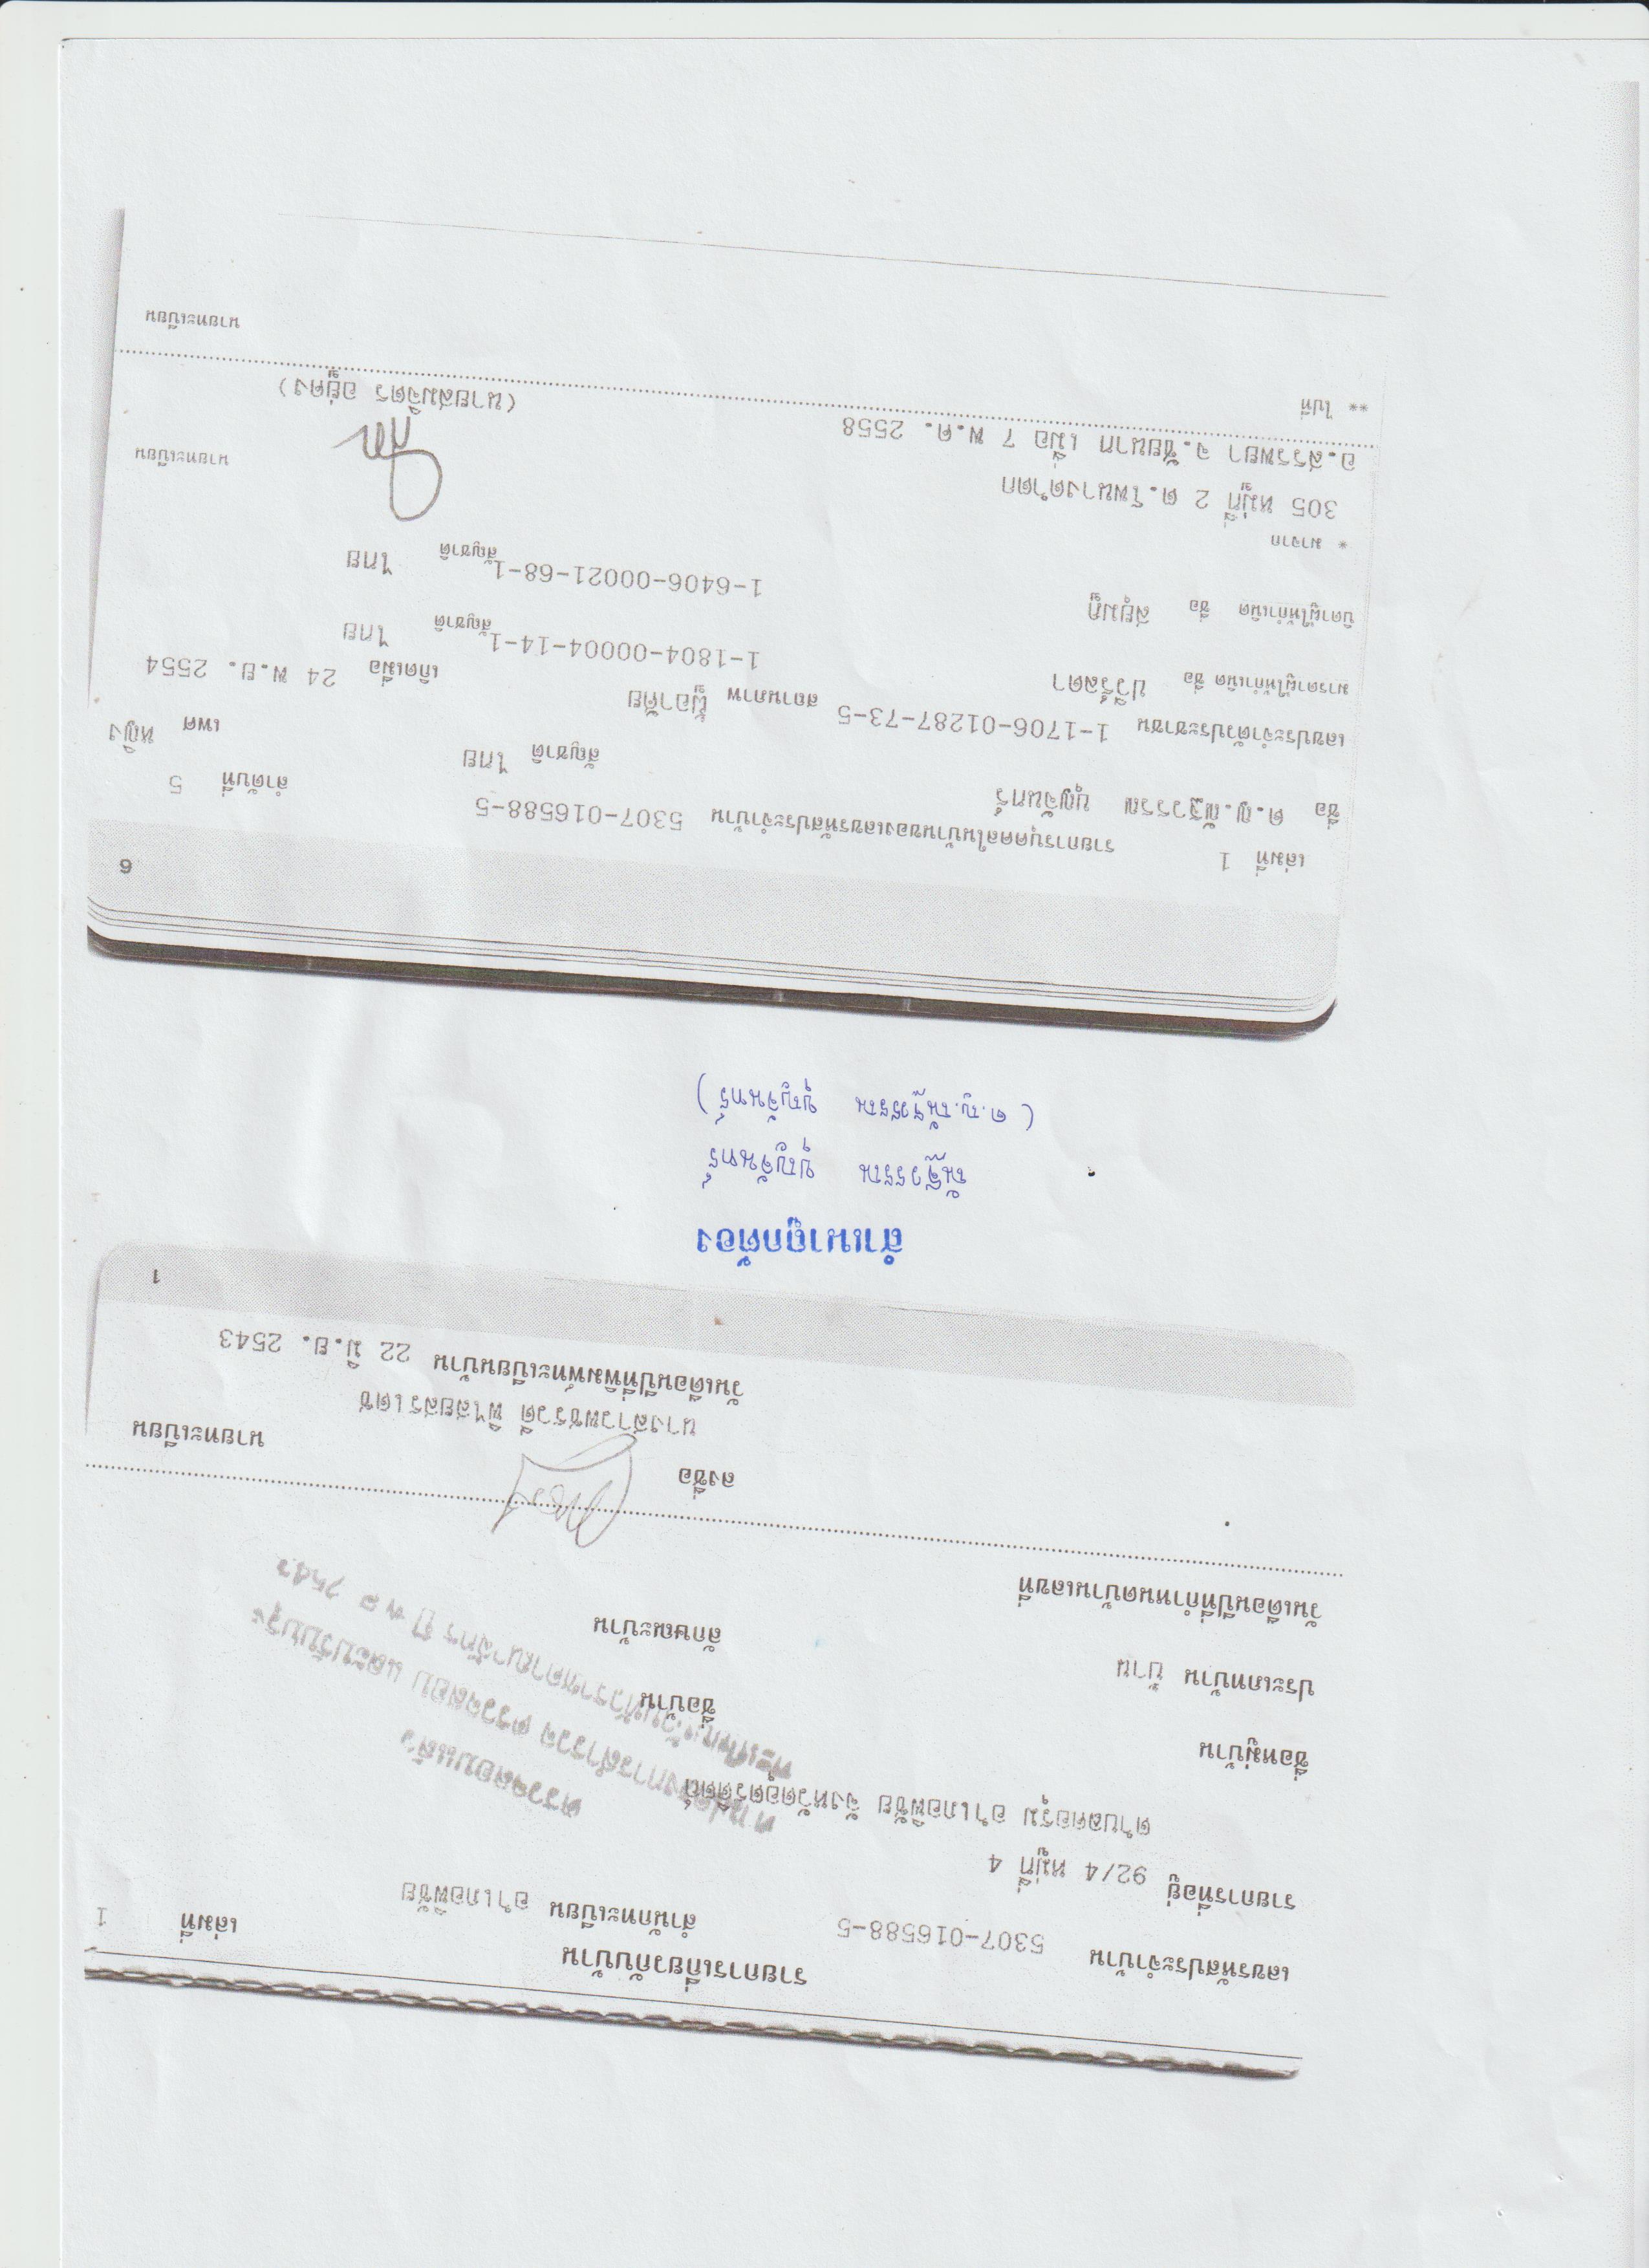 รายการเกี่ยวกับบ้าน เล่มที่ 1
เลขรหัสประจำบ้าน 5307-016588-5 สำนักทะเบียน อำเภอพิชัย
รายการที่อยู่ 92/4 หมู่ที่ 4
ตำบลคอรุม อำเภอพิชัย จังหวัดอุตรดิตถ์
ตรวจสอบแล้ว
ตามโครงการสำรวจ ตรวจสอบ และปรับปรุง
ชื่อหมู่บ้าน ชื่อบ้าน
ประเภทบ้าน บ้าน ลักษณะบ้าน
วันเดือนปีที่กำหนดบ้านเลขที่
ลงชื่อ นายทะเบียน
นางสาวพชรวดี พิไสยสรเดช
วันเดือนปีที่พิมพ์ทะเบียนบ้าน 22 มิ.ย. 2543
1
สำเนาถูกต้อง
ณัฐวรรณ บุญจันทร์
( ด.ญ.ณัฐวรรณ บุญจันทร์ )
6
เล่มที่ 1 รายการบุคคลในบ้านของเลขรหัสประจำบ้าน 5307-016588-5 ลำดับที่ 5
ชื่อ ด.ญ.ณัฐวรรณ บุญจันทร์ สัญชาติ ไทย เพศ หญิง
เลขประจำตัวประชาชน 1-1706-01287-73-5 สถานภาพ ผู้อาศัย เกิดเมื่อ 24 พ.ย. 2554
มารดาผู้ให้กำเนิด ชื่อ ปวริลดา 1-1804-00004-14-1 สัญชาติ ไทย
บิดาผู้ให้กำเนิด ชื่อ สยุมภู 1-6406-00021-68-1 สัญชาติ ไทย
* มาจาก
305 หมู่ที่ 2 ต.โพนางดำตก
อ.สรรพยา จ.ชัยนาท เมื่อ 7 พ.ค. 2558 นายทะเบียน
(นายสมจิตร อยู่คง)
** ไปที่
นายทะเบียน